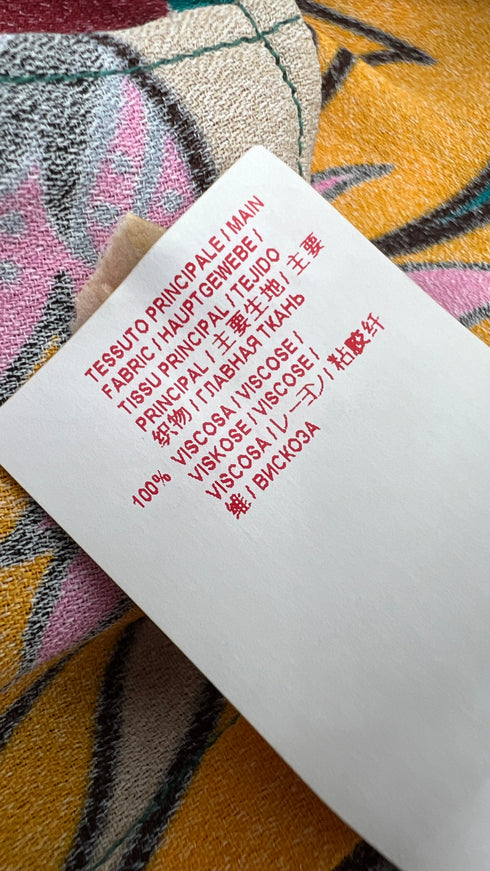 TESSUTO PRINCIPALE / MAIN
FABRIC / HAUPTGEWEBE /
TISSU PRINCIPAL / TEJIDO
PRINCIPAL / 主要生地 / 主要
织物 / ГЛАВНАЯ ТКАНЬ
100% VISCOSA / VISCOSE /
VISKOSE / VISCOSE /
VISCOSA / レーヨン / 粘胶纤
维 / ВИСКОЗА